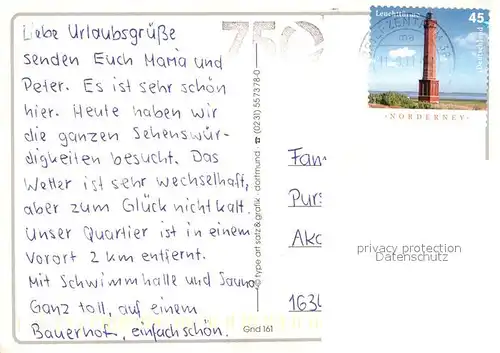 Liebe Urlaubsgrüße
senden Euch Mama und
Peter. Es ist sehr schön
hier. Heute haben wir
die ganzen Sehenswür-
digkeiten besucht. Das
Wetter ist sehr wechselhaft,
aber zum Glück nicht kalt.
Unser Quartier ist in einem
Vorort 2 km entfernt.
Mit Schwimmhalle und Sauna
Ganz toll, auf einem
Bauernhof, einfach schön.
750
© type art satz & grafik · dortmund · ☎ (0231) 557378-0
Grid 161
Leuchttürme
45
Deutschland
NORDERNEY
Fam
Purs
privacy protection
Datenschutz